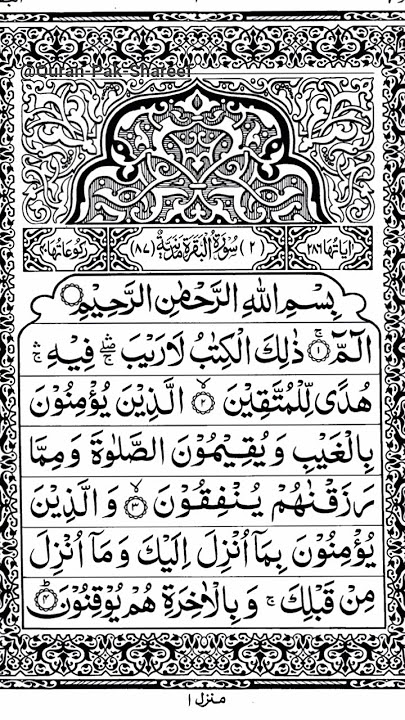 @Quran-Pak-Shareef
اٰيَاتُهَا ٢٨٦ (٢) سُوْرَةُ الْبَقَرَةِ مَدَنِيَّةٌ (٨٧) رُكُوْعَاتُهَا ٤٠
بِسْمِ اللّٰهِ الرَّحْمٰنِ الرَّحِيْمِ
الٓمّٓ ۚ ١ ذٰلِكَ الْكِتٰبُ لَا رَيْبَ ۛ فِيْهِ ۛ
هُدًى لِّلْمُتَّقِيْنَ ۙ ٢ الَّذِيْنَ يُؤْمِنُوْنَ
بِالْغَيْبِ وَيُقِيْمُوْنَ الصَّلٰوةَ وَمِمَّا
رَزَقْنٰهُمْ يُنْفِقُوْنَ ۙ ٣ وَالَّذِيْنَ
يُؤْمِنُوْنَ بِمَآ اُنْزِلَ اِلَيْكَ وَمَآ اُنْزِلَ
مِنْ قَبْلِكَ ۚ وَبِالْاٰخِرَةِ هُمْ يُوْقِنُوْنَ ؕ ٤
منزل ١